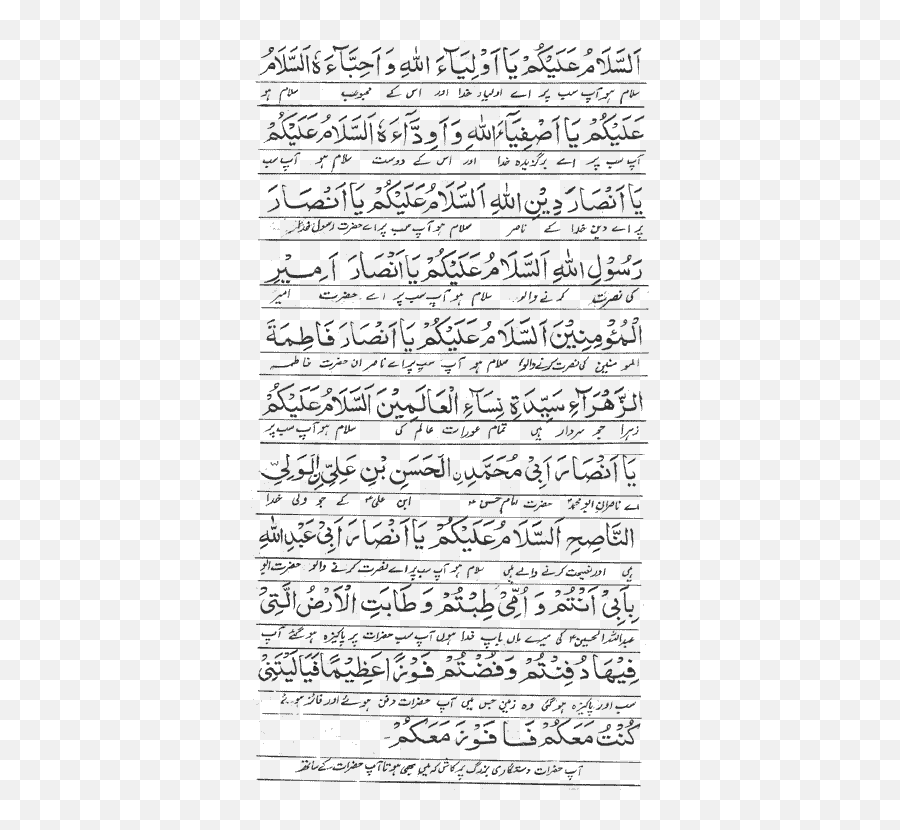 اَلسَّلَامُ عَلَيْكُمْ يَا اَوْلِيَآءَ اللهِ وَ اَحِبَّآءَهٗ اَلسَّلَامُ
سلام ہو آپ سب پر اے اولیاء خدا اور اس کے محبوب سلام ہو
عَلَيْكُمْ يَا اَصْفِيَآءَ اللهِ وَ اَوِدَّآءَهٗ اَلسَّلَامُ عَلَيْكُمْ
آپ سب پر اے برگزیدہ خدا اور اس کے دوست سلام ہو آپ سب
يَا اَنْصَارَ دِيْنِ اللهِ اَلسَّلَامُ عَلَيْكُمْ يَا اَنْصَارَ
پر اے دین خدا کے ناصر سلام ہو آپ سب پر اے حضرت رسول خدا
رَسُوْلِ اللهِ اَلسَّلَامُ عَلَيْكُمْ يَا اَنْصَارَ اَمِيْرِ
کی نصرت کرنے والو سلام ہو آپ سب پر اے حضرت امیر
الْمُؤْمِنِيْنَ اَلسَّلَامُ عَلَيْكُمْ يَا اَنْصَارَ فَاطِمَةَ
المومنین کی نصرت کرنے والو سلام ہو آپ سب پر اے ناصران حضرت فاطمہ
الزَّهْرَآءِ سَيِّدَةِ نِسَآءِ الْعَالَمِيْنَ اَلسَّلَامُ عَلَيْكُمْ
زہرا جو سردار ہیں تمام عورات عالم کی سلام ہو آپ سب پر
يَا اَنْصَارَ اَبِيْ مُحَمَّدِنِ الْحَسَنِ بْنِ عَلِيِّنِ الْوَلِيِّ
اے ناصران ابو محمدؑ حضرت امام حسنؑ ابن علیؑ کے جو ولی خدا
النَّاصِحِ اَلسَّلَامُ عَلَيْكُمْ يَا اَنْصَارَ اَبِيْ عَبْدِ اللهِ
ہیں اور نصیحت کرنے والے ہیں سلام ہو آپ سب پر اے نصرت کرنے والو حضرت ابو
بِاَبِيْ اَنْتُمْ وَ اُمِّيْ طِبْتُمْ وَ طَابَتِ الْاَرْضُ الَّتِيْ
عبداللہ الحسینؑ کی میرے ماں باپ فدا ہوں آپ سب حضرات پر پاکیزہ ہو گئے آپ
فِيْهَا دُفِنْتُمْ وَ فُضْتُمْ فَوْزًا عَظِيْمًا فَيَا لَيْتَنِيْ
سب اور پاکیزہ ہو گئی وہ زمین جس میں آپ حضرات دفن ہوئے اور فائز ہوئے
كُنْتُ مَعَكُمْ فَا فَوْزَ مَعَكُمْ
آپ حضرات رستگاری بزرگ پر کاش کہ میں بھی ہوتا آپ حضرات کے ساتھ